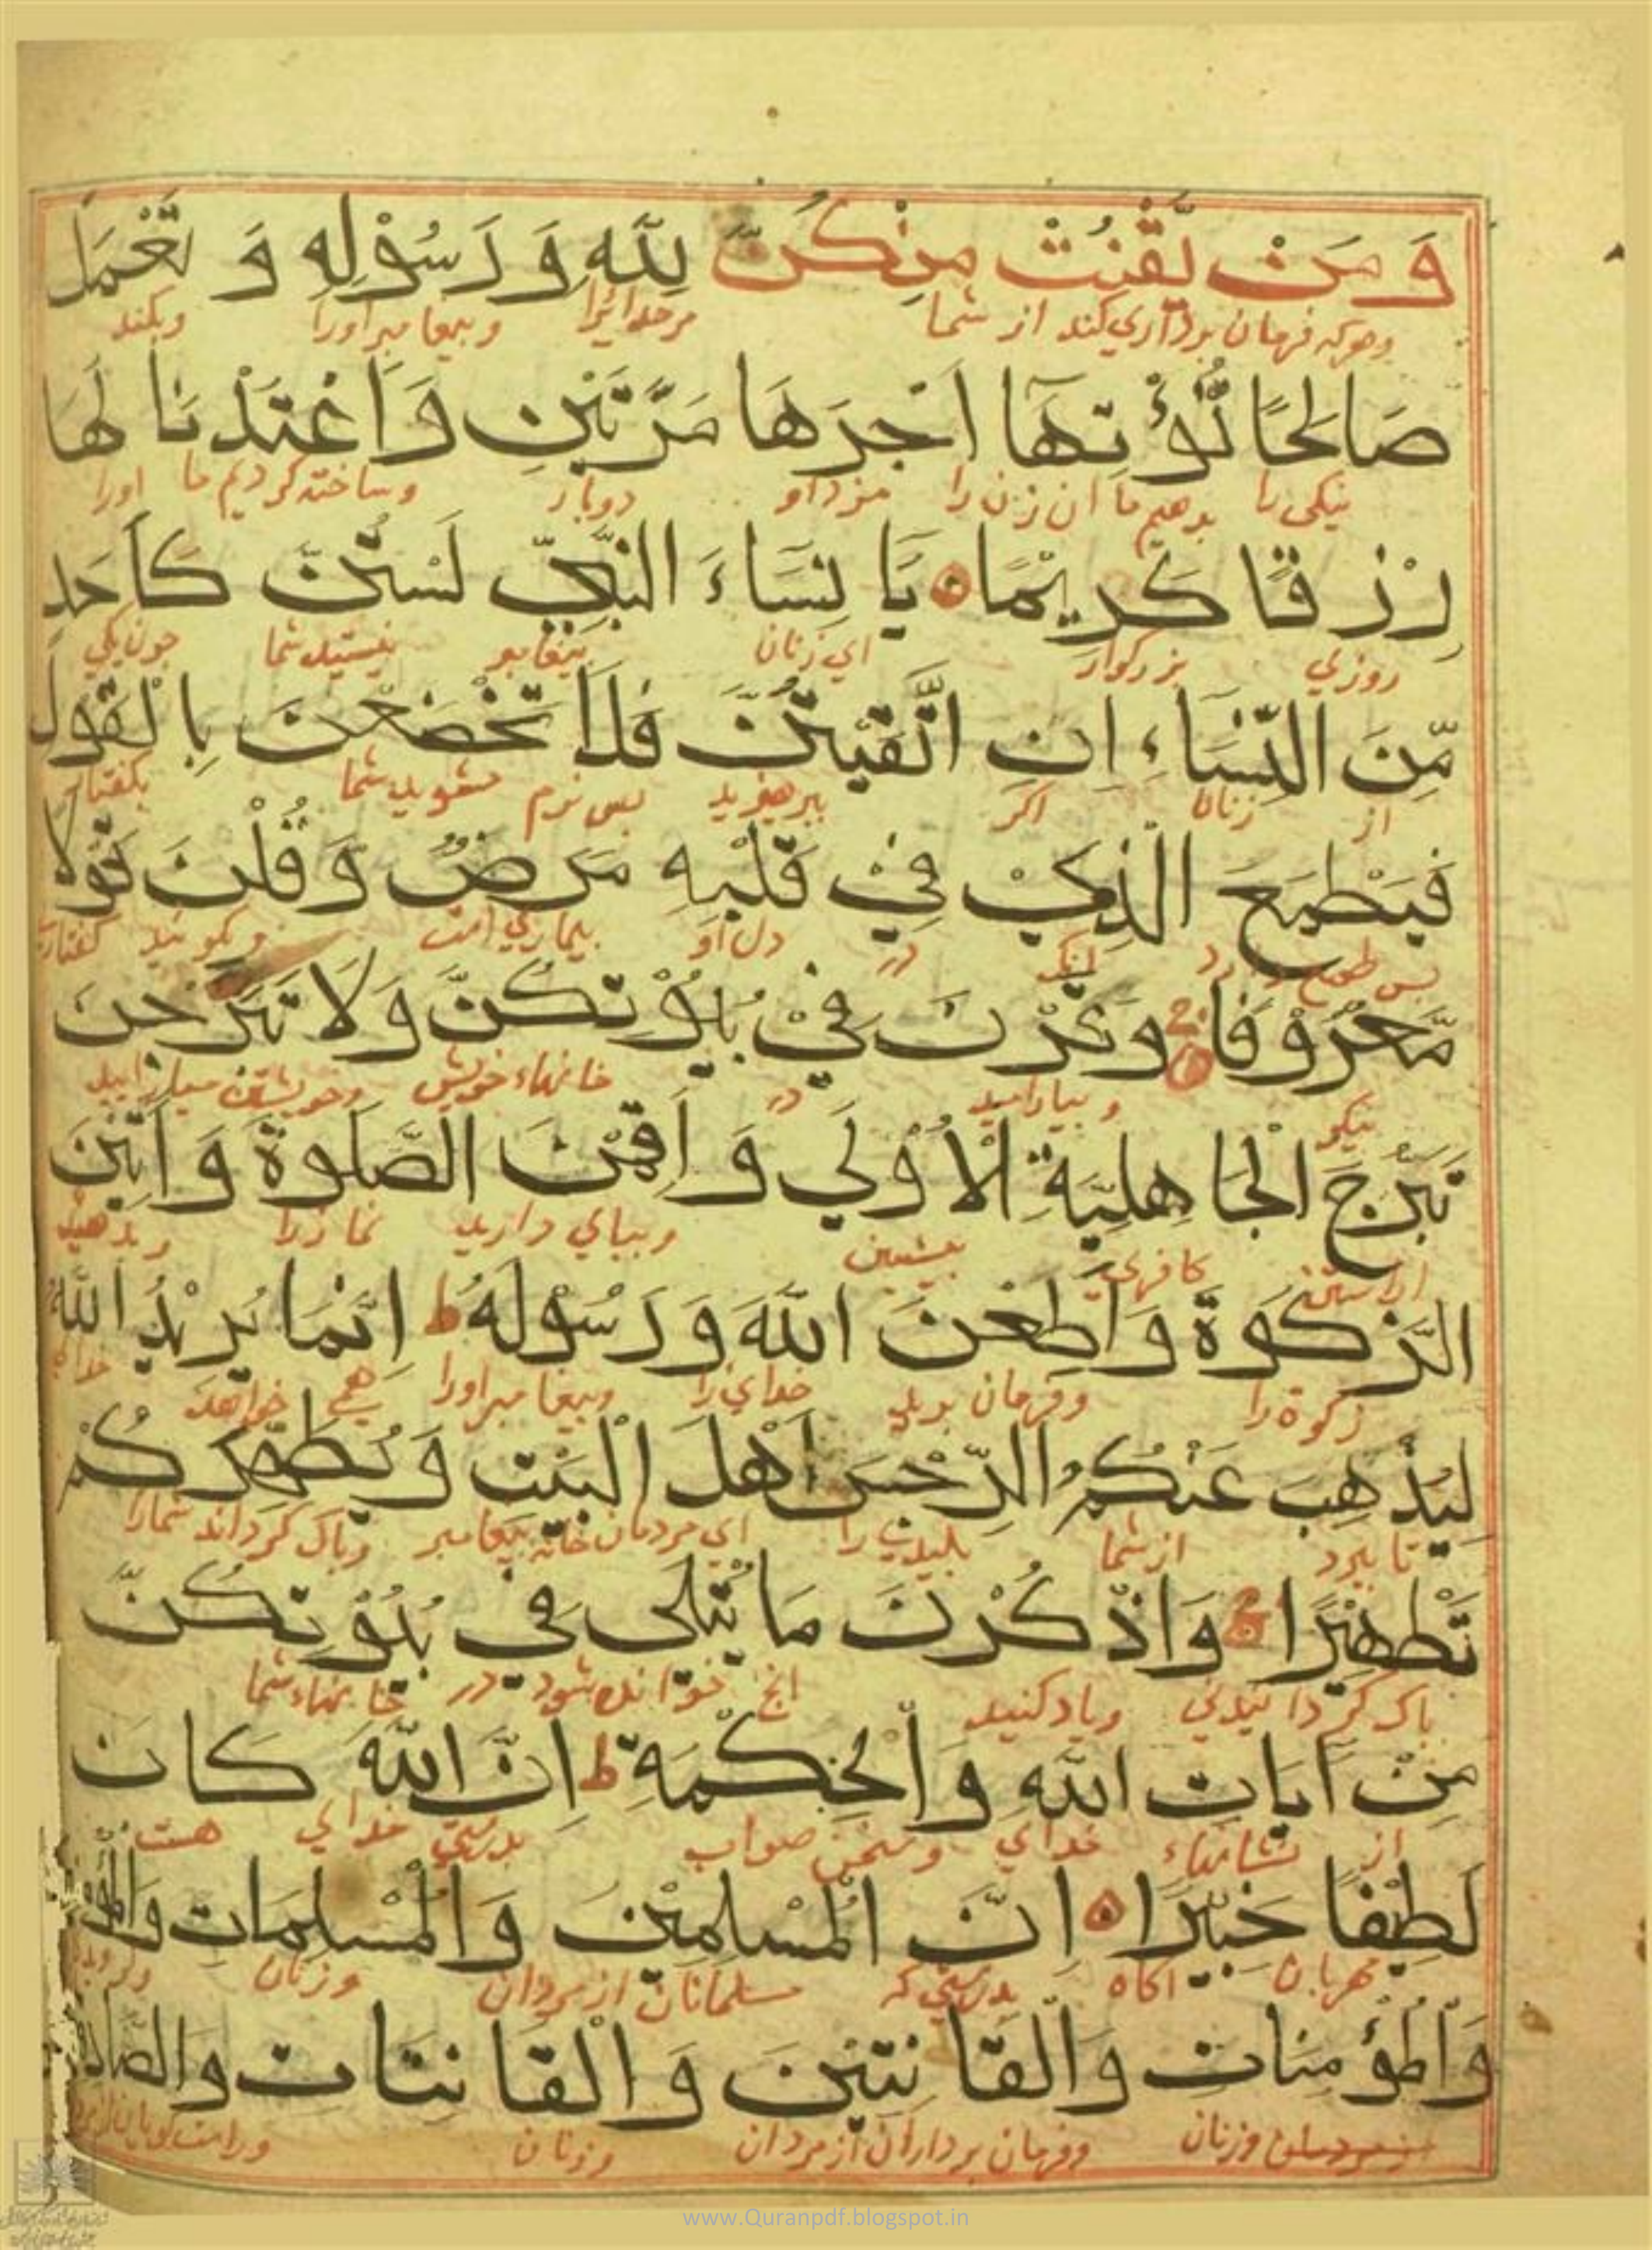 وَ مَنْ يَّقْنُتْ مِنْكُنَّ لِلّٰهِ وَ رَسُوْلِهِ وَ تَعْمَلْ
وهرکه فرمان برداری کند از شما مر خدایرا وپیغامبر اورا وبکند
صَالِحًا نُّؤْتِهَا اَجْرَهَا مَرَّتَيْنِ وَاَعْتَدْنَا لَهَا
نیکی را بدهیم ما آن زن را مزد او دوبار وساخته کردیم ما اورا
رِزْقًا كَرِيْمًا يَا نِسَاءَ النَّبِيِّ لَسْتُنَّ كَاَحَدٍ
روزی بزرکوار ای زنان پیغامبر نیستید شما چون یکی
مِّنَ النِّسَاءِ اِنِ اتَّقَيْتُنَّ فَلَا تَخْضَعْنَ بِالْقَوْلِ
از زنان اکر بپرهیزید پس نرم مشوید شما بکفتار
فَيَطْمَعَ الَّذِيْ فِيْ قَلْبِهِ مَرَضٌ وَ قُلْنَ قَوْلًا
پس طمع دارد آنک در دل او بیماری است وبکوئید کفتار
مَّعْرُوْفًا وَ قَرْنَ فِيْ بُيُوْتِكُنَّ وَلَا تَبَرَّجْنَ
نیکو وبیارامید در خانهاء خویش وخویشتن میارایید
تَبَرُّجَ الْجَاهِلِيَّةِ الْاُوْلٰي وَ اَقِمْنَ الصَّلٰوةَ وَ اٰتِيْنَ
آراستن کافری پیشین وبپای دارید نمازرا وبدهید
الزَّكٰوةَ وَاَطِعْنَ اللّٰهَ وَ رَسُوْلَهُ ط اِنَّمَا يُرِيْدُ اللّٰهُ
زکوة را وفرمان برید خدای را وپیغامبر اورا همی خواهد خدای
لِيُذْهِبَ عَنْكُمُ الرِّجْسَ اَهْلَ الْبَيْتِ وَ يُطَهِّرَكُمْ
تا ببرد از شما پلیدی را ای مردمان خانه پیغامبر وپاک کرداند شمارا
تَطْهِيْرًا وَاذْكُرْنَ مَا يُتْلٰى فِي بُيُوْتِكُنَّ
پاک کردانیدنی ویاد کنید آنچ خوانده شود در خانهاء شما
مِنْ اٰيَاتِ اللّٰهِ وَالْحِكْمَةِ ط اِنَّ اللّٰهَ كَانَ
از نشانهاء خدای وسخن صواب بدرستی خدای هست
لَطِيْفًا خَبِيْرًا اِنَّ الْمُسْلِمِيْنَ وَالْمُسْلِمَاتِ
مهربان آکاه بدرستی که مسلمانان از مردان وزنان
وَالْمُؤْمِنَاتِ وَالْقَانِتِيْنَ وَالْقَانِتَاتِ
وزنان وفرمان برداران از مردان وزنان
www.Quranpdf.blogspot.in